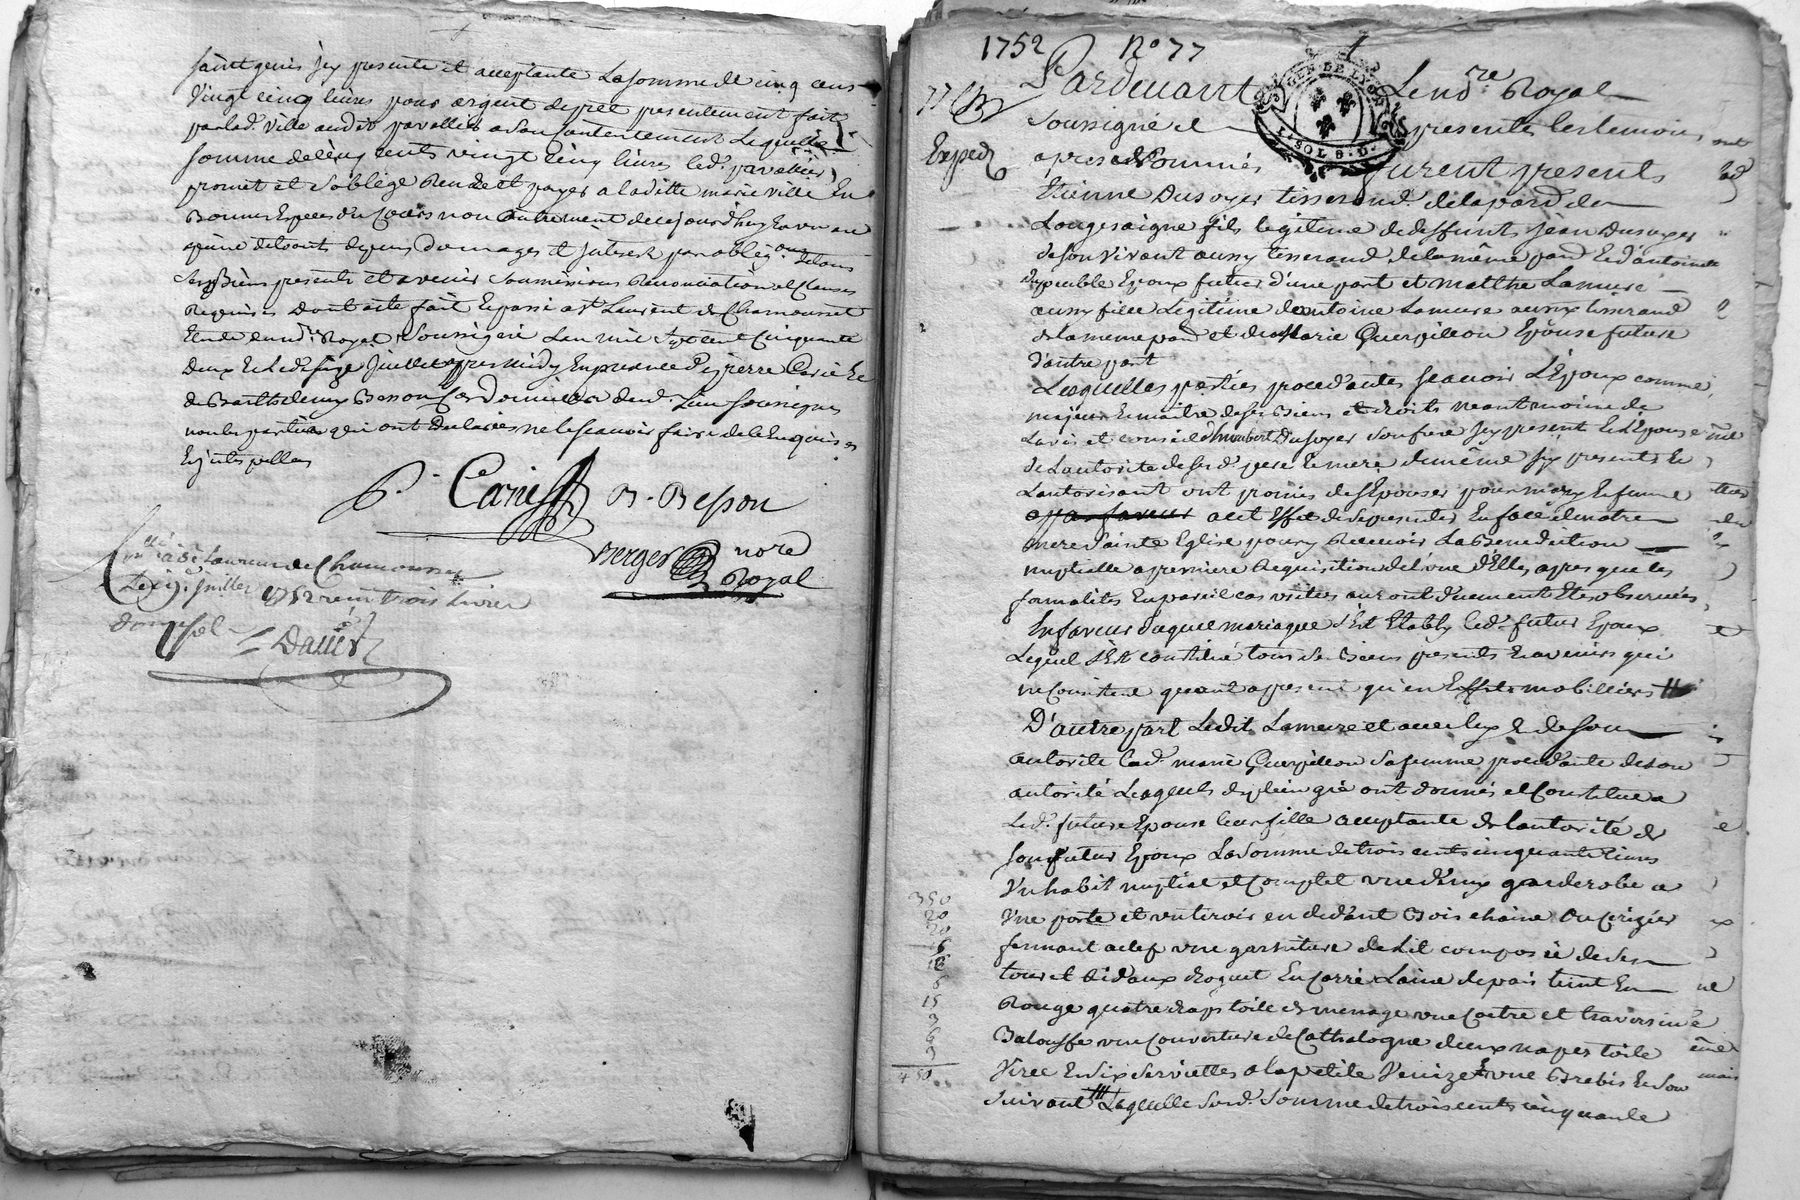 saint genis icy presente et acceptante La somme de cinq cens
vingt cinq livres pour argent de pret presentement fait
par lad. ville audit pavallier a son Contentement Laquelle
somme de cinq cents vingt cinq livres led. pavallier
promet et soblige Rendre et payer a laditte marie ville En
Bonnes Especes du Cours non autrement de ce jourd'huy en un an
a peine de touts depens, Dommages et interest par oblig.on de tous
ses Biens presents et avenir soumissions Renonciation et Clauses
Requises Dont acte fait Et passé a St Laurent de Chamousset
Etude du nore Royal soussigné Lan mil sept cent Cinquante
Deux Et Le seize Juillet apres midy En presence de pierre Carié Et
de Barthelemy Besson Cordonniers dud. Lieu soussignes
non les parties qui ont declarées ne le scavoir faire de ce Enquises
Et interpellées
P. Carié B. Besson
Berger nore
Royal
à St Laurent de Chamousset
Le 19e Juillet 1752 reçu trois Livres
Dauier
1752 No 77
77
Pardevant Le nore Royal
GEN. DE LYON
SOLS 8. D.
Soussigné et presents les temoins
apres nommés furent presents
Expedé
Etienne Dusoyer tisserand de la paroisse de
Longesaigne fils legitime de deffunts jean Dusoyer
de son vivant aussy tisserand de la même paroisse Et d'antoinette
Epoux futur d'une part et Matthie Lamure
aussy fille Legitime de antoine Lamure aussy tisserand
de la meme paroisse et de Marie Querpillon Epouse future
d'autre part
Lesquelles parties procedantes scavoir L'Epoux comme
majeur Et maitre de ses Biens et droits neantmoins de
L'avis et conseil d'humbert Dusoyer son frere icy present Et L'Epouse
de L'autorité de sesd. pere Et mere de même icy presents Et
Lautorisant ont promis de s'Epouser pour mary Et femme
a cet Effet de se presenter En face de notre
mere sainte Eglise pour y Recevoir La Benediction
nuptialle a premiere Requisition de L'une d'Elles apres que les
formalités En pareil cas usitées auront duement Eté observées
En faveur duquel mariage s'Est Etably led. futur Epoux
Lequel s'Est constitué tous ses Biens presents Et avenirs qui
ne Consistent quant a present qu'en Effets mobilliers
D'autre part Ledit Lamure et avec luy & de son
autorité lad. marie Querpillon sa femme procedante de son
autorité Lesquels de plein gré ont donnés et Constitué a
Lad. future Epouse leur fille acceptante de lautorité de
son futur Epoux La somme de trois cents cinquante livres
Un habit nuptial et Complet une d'eux garderobe a
Une porte et un tiroir en dedant Bois chaine ou Cerizier
fermant a clef une garniture de Lit composée de son
tour et Rideaux droguet En Carré Laine de pais teint En
Rouge quatre draps toile de menage une Coetre et traversin de
Balouffe une Couverture de Cathalogne deux napes toile
Virée Et six serviettes a la petite Venize Et une Brebis Et son
suivant Laquelle susd. somme de trois cents cinquante
350
20
20
15
3
6
3
450